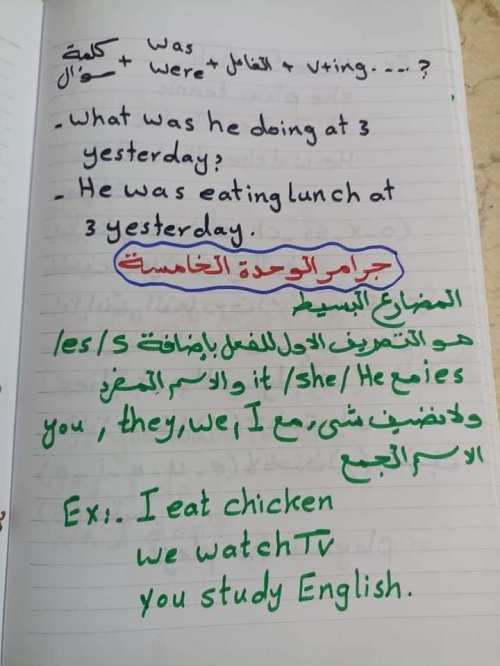 كلمة سؤال + was were + الفاعل + v+ing....?
- What was he doing at 3
yesterday?
- He was eating lunch at
3 yesterday.
جرامر الوحدة الخامسة
المضارع البسيط
هو التصريف الاول للفعل بإضافة es/s/
ies مع it /she/ He والاسم المفرد
ولا نضيف شىء مع you, they, we, I
الاسم الجمع
Ex:. I eat chicken
we watch TV
you study English.